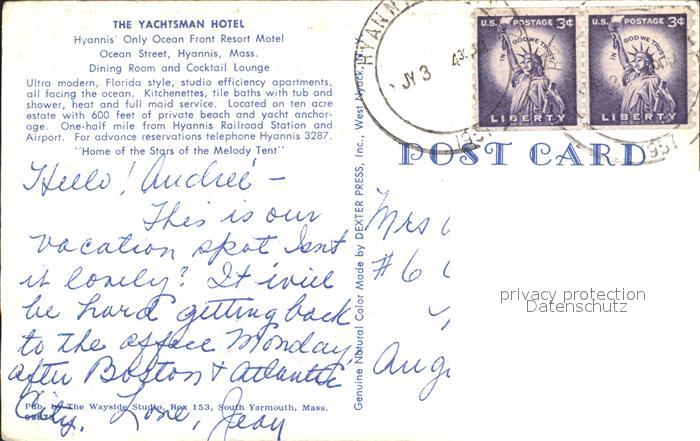 THE YACHTSMAN HOTEL
Hyannis' Only Ocean Front Resort Motel
Ocean Street, Hyannis, Mass.
Dining Room and Cocktail Lounge
Ultra modern, Florida style, studio efficiency apartments,
all facing the ocean. Kitchenettes, tile baths with tub and
shower, heat and full maid service. Located on ten acre
estate with 600 feet of private beach and yacht anchor-
age. One-half mile from Hyannis Railroad Station and
Airport. For advance reservations telephone Hyannis 3287.
"Home of the Stars of the Melody Tent"
Hello! Andreé -
This is our
vacation spot Isnt
it lovely? It will
be hard getting back
to the office Monday,
after Boston & Atlantic
City. Love, Jean
Pub. by The Wayside Studio, Box 153, South Yarmouth, Mass.
Genuine Natural Color Made by DEXTER PRESS, Inc., West Nyack,
HYANN
JY 3
1957
U.S. POSTAGE 3¢
IN GOD WE TRUST
LIBERTY
U.S. POSTAGE 3¢
IN GOD WE TRUST
LIBERTY
POST CARD
Mrs
#6
privacy protection
Datenschutz